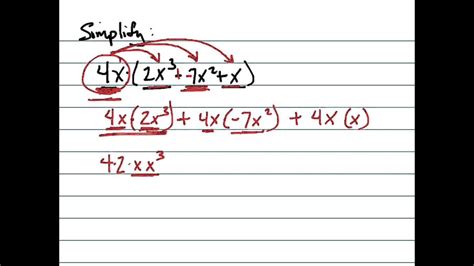 Simplify:
4x·(2x³+-7x²+x)
4x(2x³) + 4x(-7x²) + 4x(x)
4·2·xx³